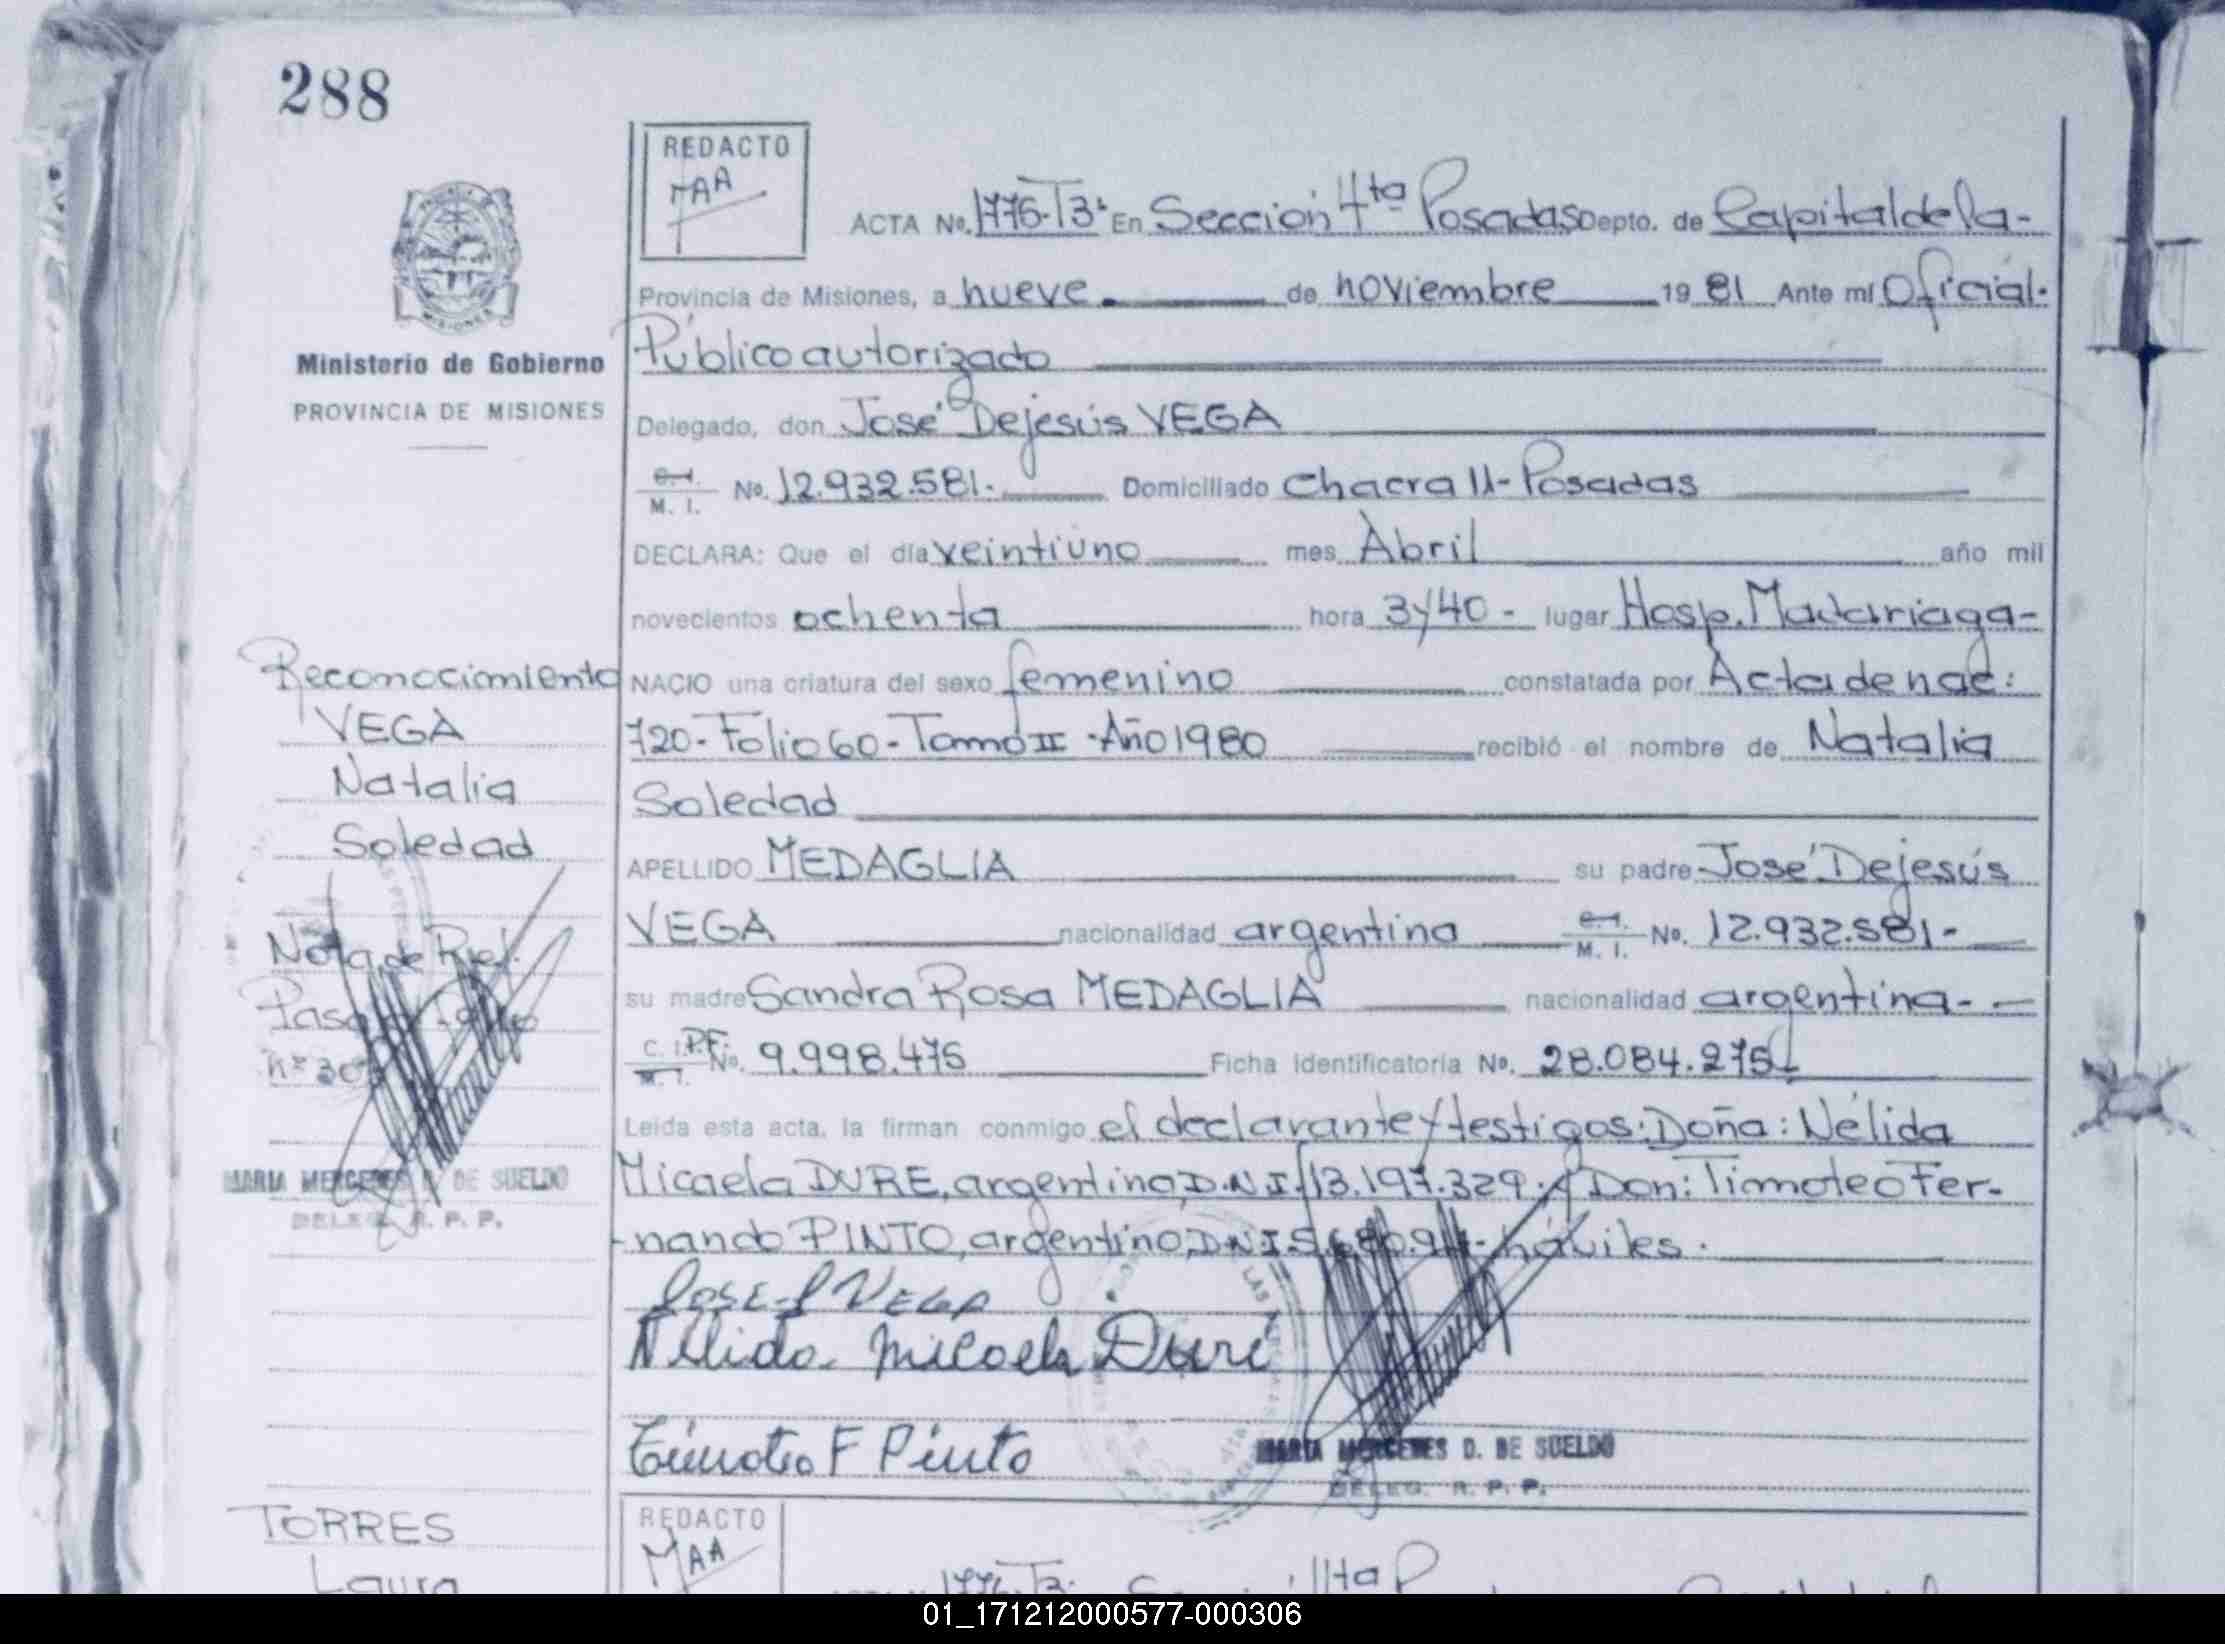 288
REDACTO
MAA
ACTA No. 1775-T3· En Sección 4ta Posadas Depto. de Capital de la-
Provincia de Misiones, a nueve de noviembre 19 81 Ante mí Oficial·
Público autorizado
Delegado, don José Dejesús VEGA
C.I.
M. I. No. 12.932.581·- Domiciliado Chacra 11- Posadas
DECLARA: Que el día veintiuno mes Abril año mil
novecientos ochenta hora 3y40 - lugar Hosp. Madariaga-
NACIO una criatura del sexo femenino constatada por Acta de nac:
720- Folio 60 - Tomo II -Año 1980 recibió el nombre de Natalia
Soledad
APELLIDO MEDAGLIA su padre José Dejesús
VEGA nacionalidad argentino C.I. M. I. No. 12.932.581-
su madre Sandra Rosa MEDAGLIA nacionalidad argentina-
C. I. P.F. M. I. No. 9.998.475 Ficha identificatoria No. 28.084.275
Leída esta acta, la firman conmigo el declarante y testigos: Doña: Nélida
Micaela DURE, argentino, D.N.I. 13.197.329. y Don: Timoteo Fer-
-nando PINTO, argentino, D.N.I. háviles.
JOSE VEGA
Nélida Micaela Duré
Timoteo F Pinto
MARIA MERCEDES D. DE SUELDO
DELEG. R. P. P.
Ministerio de Gobierno
PROVINCIA DE MISIONES
Reconocimiento
VEGA
Natalia
Soledad
Nota de Ref.
Pasa
nº 30
MARIA MERCEDES D. DE SUELDO
DELEG. R. P. P.
TORRES
Laura
REDACTO
MAA
01_171212000577-000306